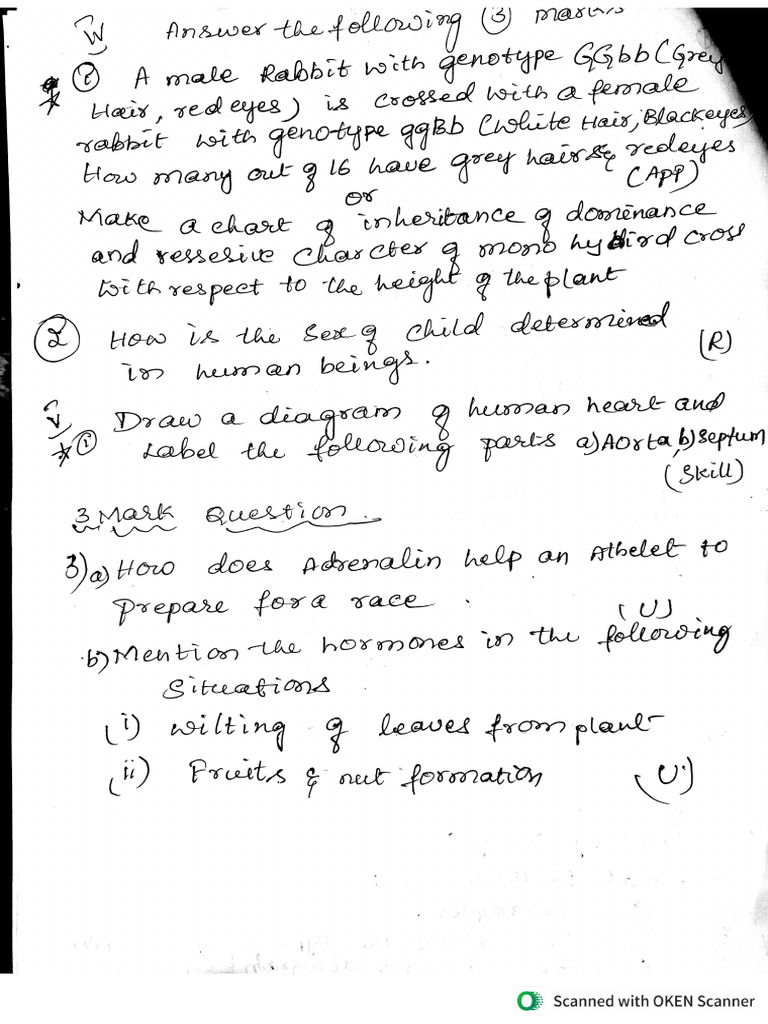 IV Answer the following (3) marks
* (i) A male Rabbit with genotype GGbb (Grey
Hair, red eyes) is crossed with a female
rabbit with genotype ggBb (White Hair, Black eyes)
How many out of 16 have grey hair & red eyes
(App)
or
Make a chart of inheritance of dominance
and ressesive Charcter of mono hydird cross
With respect to the height of the plant
(2) How is the Sex of Child determined
in human beings. (R)
V Draw a diagram of human heart and
* (i) Label the following parts a) Aorta, b) Septum
(Skill)
3 Mark Question.
3) a) How does Adrenalin help an Athelet to
Prepare for a race. (U)
b) Mention the hormones in the following
Situations
(i) wilting of leaves from plant
(ii) Fruits & nut formation (U)
Scanned with OKEN Scanner